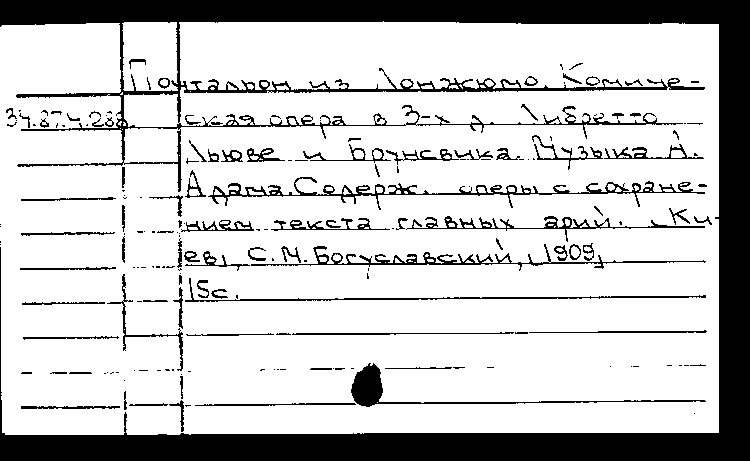 Почтальон из Лонжюмо. Комиче-
34.87.4.288. ская опера в 3-х д. Либретто
Льюве и Брунсвика. Музыка А.
Адама. Содерж. оперы с сохране-
нием текста главных арий. [Ки-
ев], С.М. Богуславский, [1909]
15с.